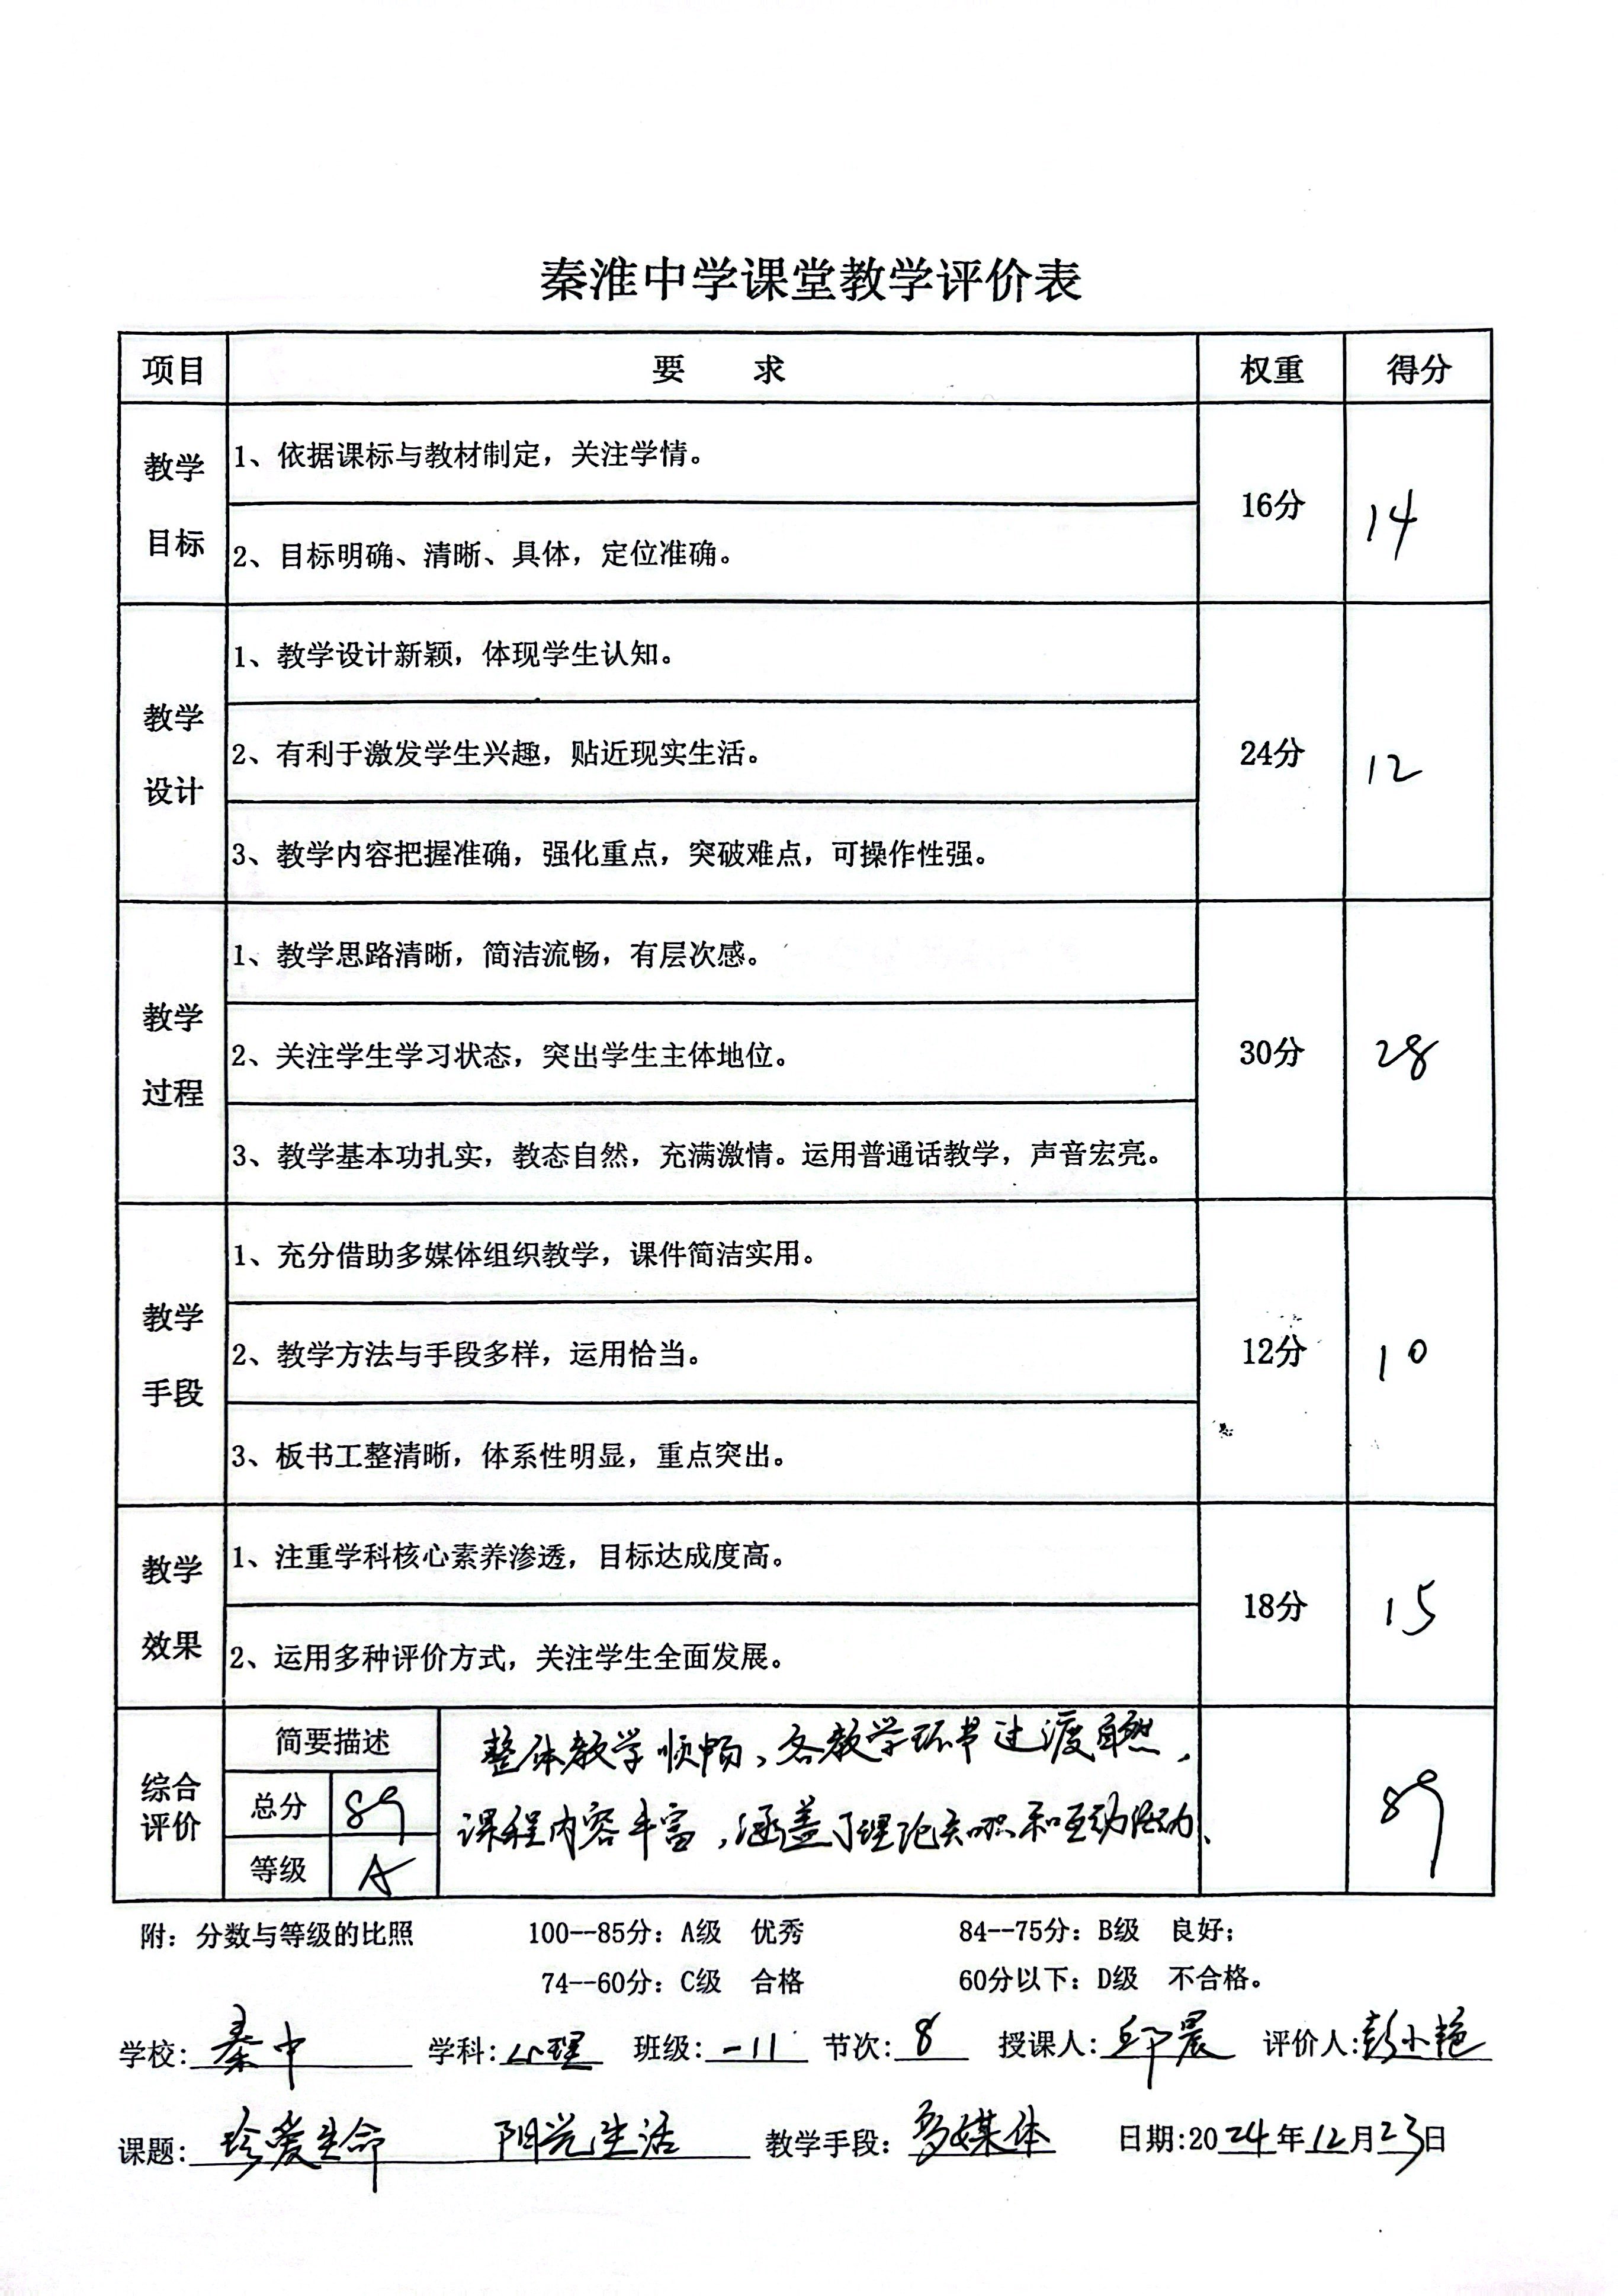 秦淮中学课堂教学评价表
项目 要 求 权重 得分
教学目标 1、依据课标与教材制定，关注学情。 16分 14
2、目标明确、清晰、具体，定位准确。
教学设计 1、教学设计新颖，体现学生认知。 24分 12
2、有利于激发学生兴趣，贴近现实生活。
3、教学内容把握准确，强化重点，突破难点，可操作性强。
教学过程 1、教学思路清晰，简洁流畅，有层次感。 30分 28
2、关注学生学习状态，突出学生主体地位。
3、教学基本功扎实，教态自然，充满激情。运用普通话教学，声音宏亮。
教学手段 1、充分借助多媒体组织教学，课件简洁实用。 12分 10
2、教学方法与手段多样，运用恰当。
3、板书工整清晰，体系性明显，重点突出。
教学效果 1、注重学科核心素养渗透，目标达成度高。 18分 15
2、运用多种评价方式，关注学生全面发展。
综合评价 简要描述 整体教学顺畅、各教学环节过渡自然，
总分 89 课程内容丰富，涵盖了理论知识和互动活动、 89
等级 A
附：分数与等级的比照 100--85分：A级 优秀 84--75分：B级 良好；
74--60分：C级 合格 60分以下：D级 不合格。
学校：秦中 学科：心理 班级：一11 节次：8 授课人：邱晨 评价人：彭小艳
课题：珍爱生命 阳光生活 教学手段：多媒体 日期：2024年12月23日